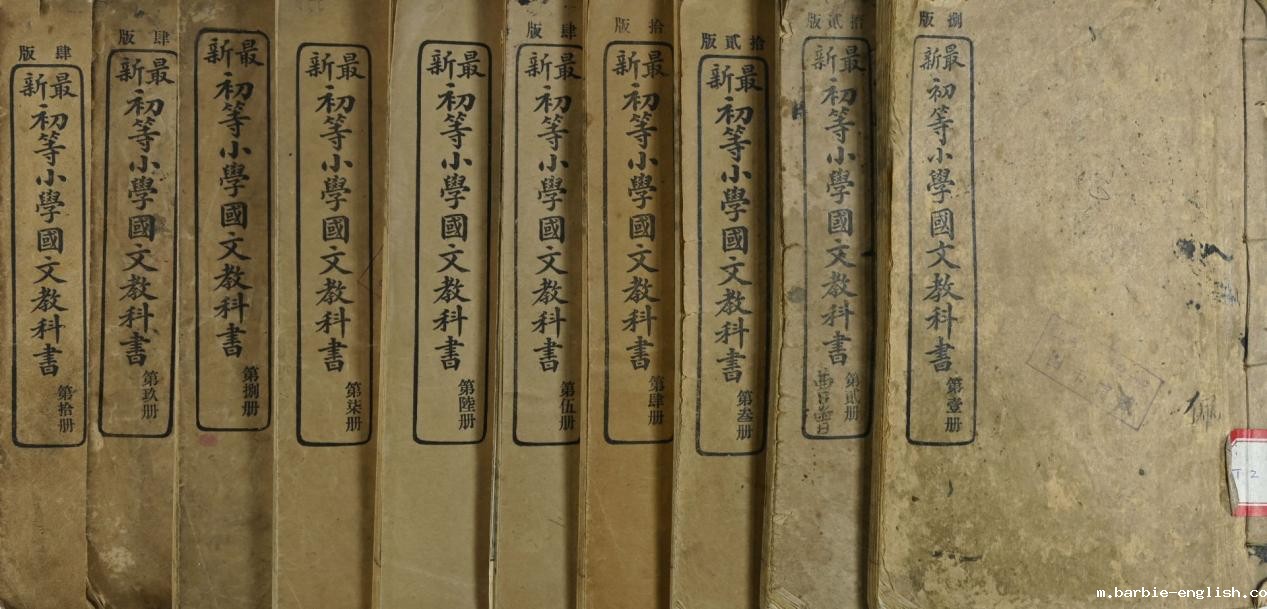 版捌
最新
初等小學國文教科書
第壹册
版貳拾
最新
初等小學國文教科書
第貳册
版貳拾
最新
初等小學國文教科書
第叁册
版拾
最新
初等小學國文教科書
第肆册
版肆
最新
初等小學國文教科書
第伍册
最新
初等小學國文教科書
第陸册
最新
初等小學國文教科書
第柒册
最新
初等小學國文教科書
第捌册
版肆
最新
初等小學國文教科書
第玖册
版肆
最新
初等小學國文教科書
第拾册
T-2
m.barbie-english.co